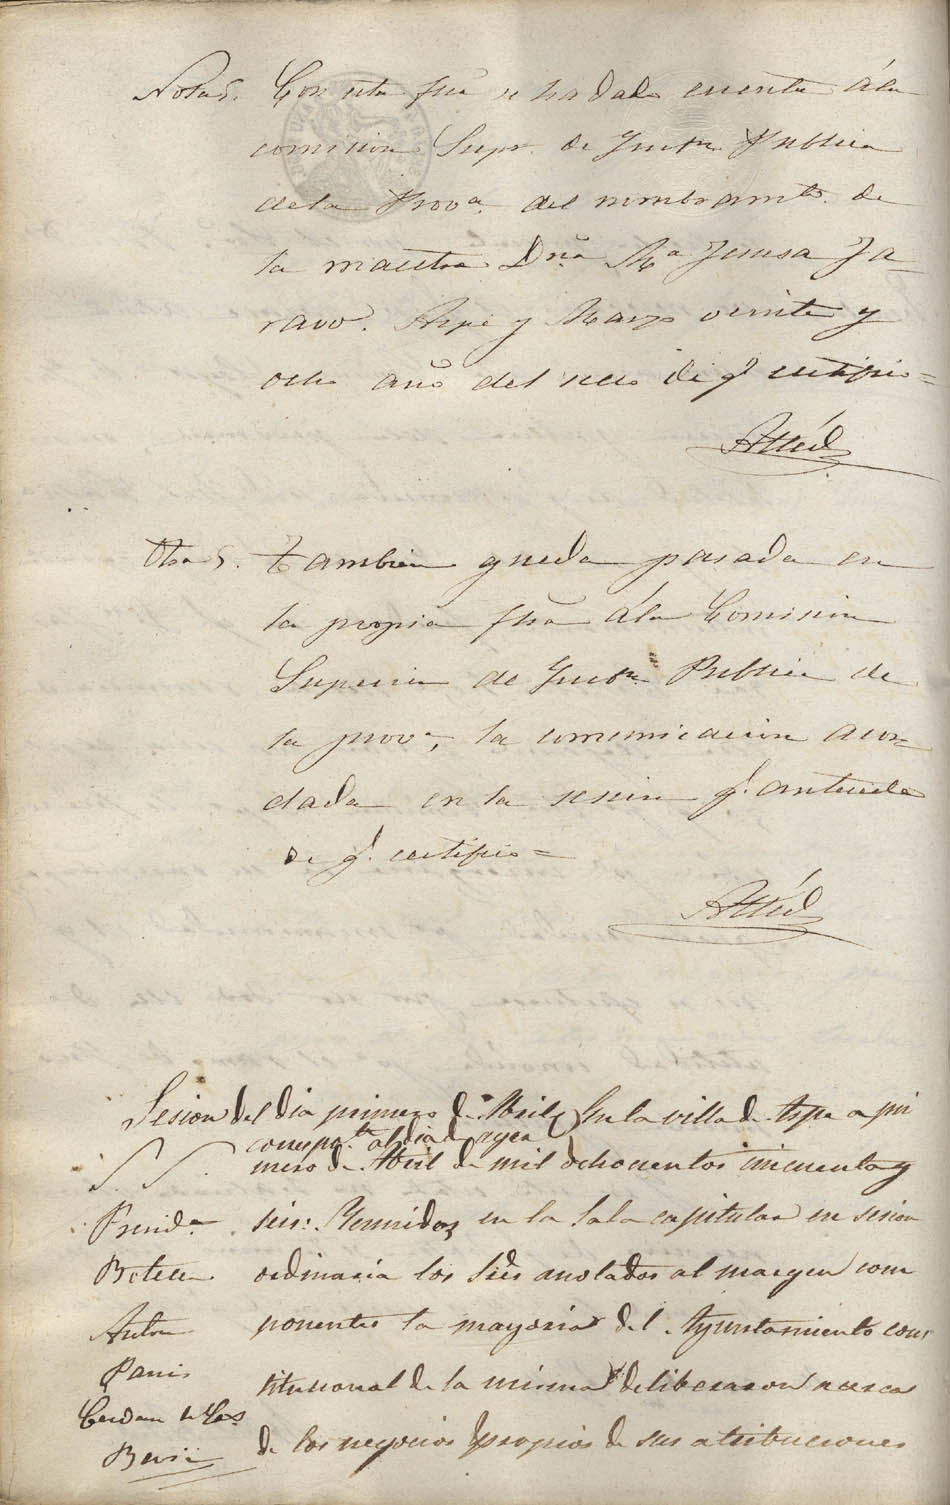 Nota S. Con esta fha se ha dado cuenta á la
comision Supr. de Instn. Publica
de la Prova. del nombramto. de
la maestra Dña. Ma Teresa Ja-
ravo. Aspe y Marzo veinte y
ocho año del sello de q.e certifico=
Otra S. Tambien queda pasada en
la propia fha á la Comision
Superior de Instn. Publica de
la prova, la comunicacion acor-
dada en la sesion q.e antecede
de q.e certifico=
Sesion del dia primero de Abril
correspte. al dia de ayer
En la villa de Aspe a pri
mero de Abril de mil ochocientos cincuenta y
seis: Reunidos en la Sala capitular en sesion
ordinaria los Sres anotados al margen com
ponentes la mayoria del Ayuntamiento cons
titucional de la misma deliberaron acerca
de los negocios propios de sus atribuciones
S. S.
Presidte
Botella
Anton
Pavis
Cerdan